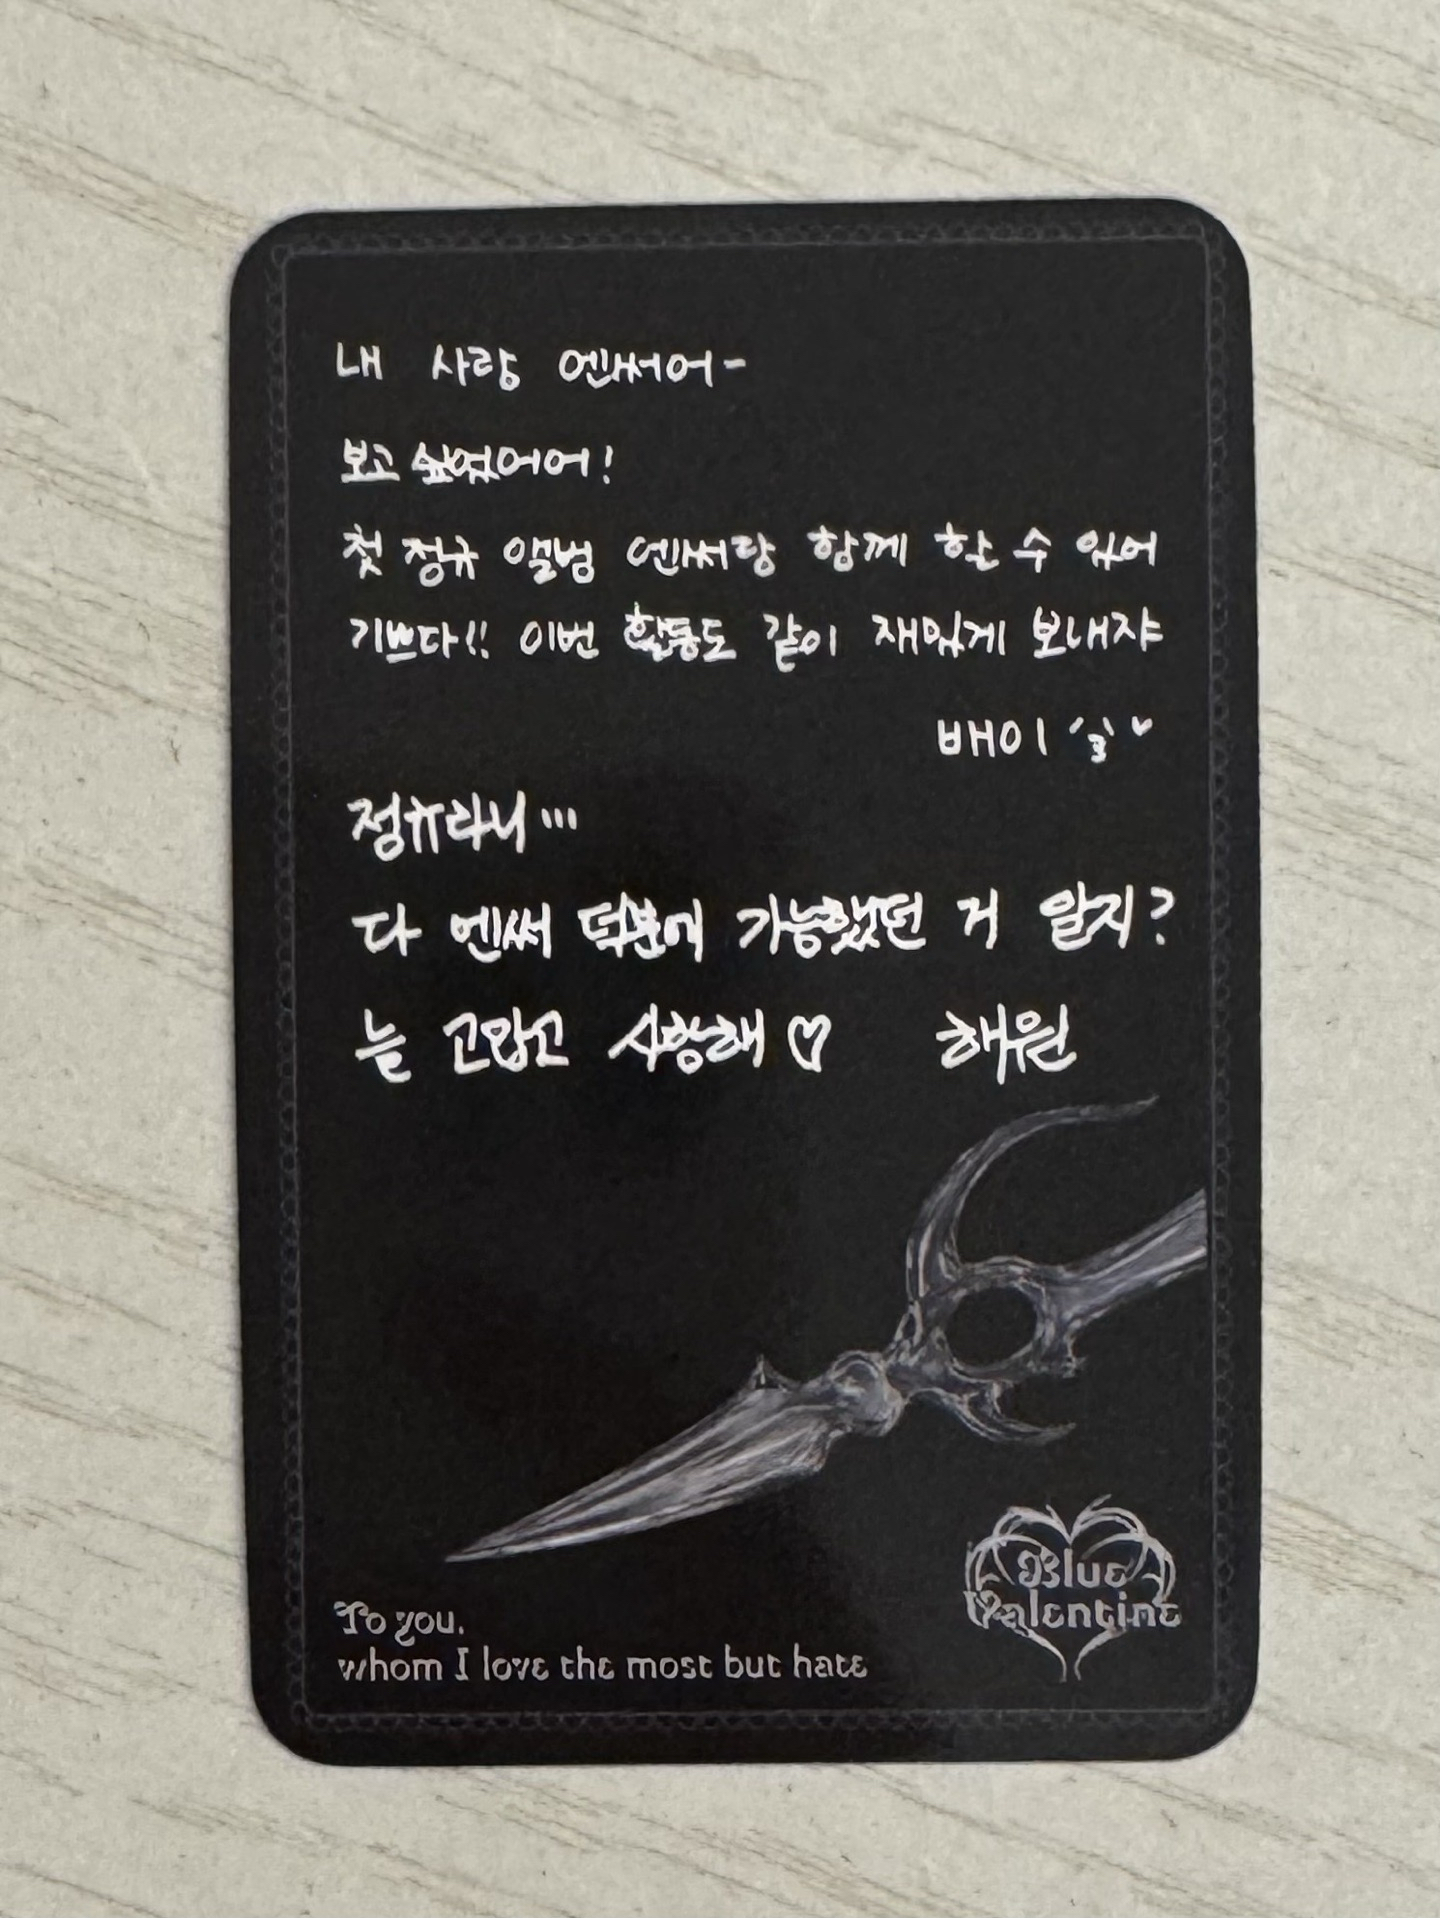 내 사랑 엔써어-
보고 싶었어어!
첫 정규 앨범 엔써랑 함께 할 수 있어
기쁘다!! 이번 활동도 같이 재밌게 보내자
배이
정규라니...
다 엔써 덕분에 가능했던 거 알지?
늘 고맙고 사랑해♡ 해원
Blue
Valentine
To you,
whom I love the most but hate